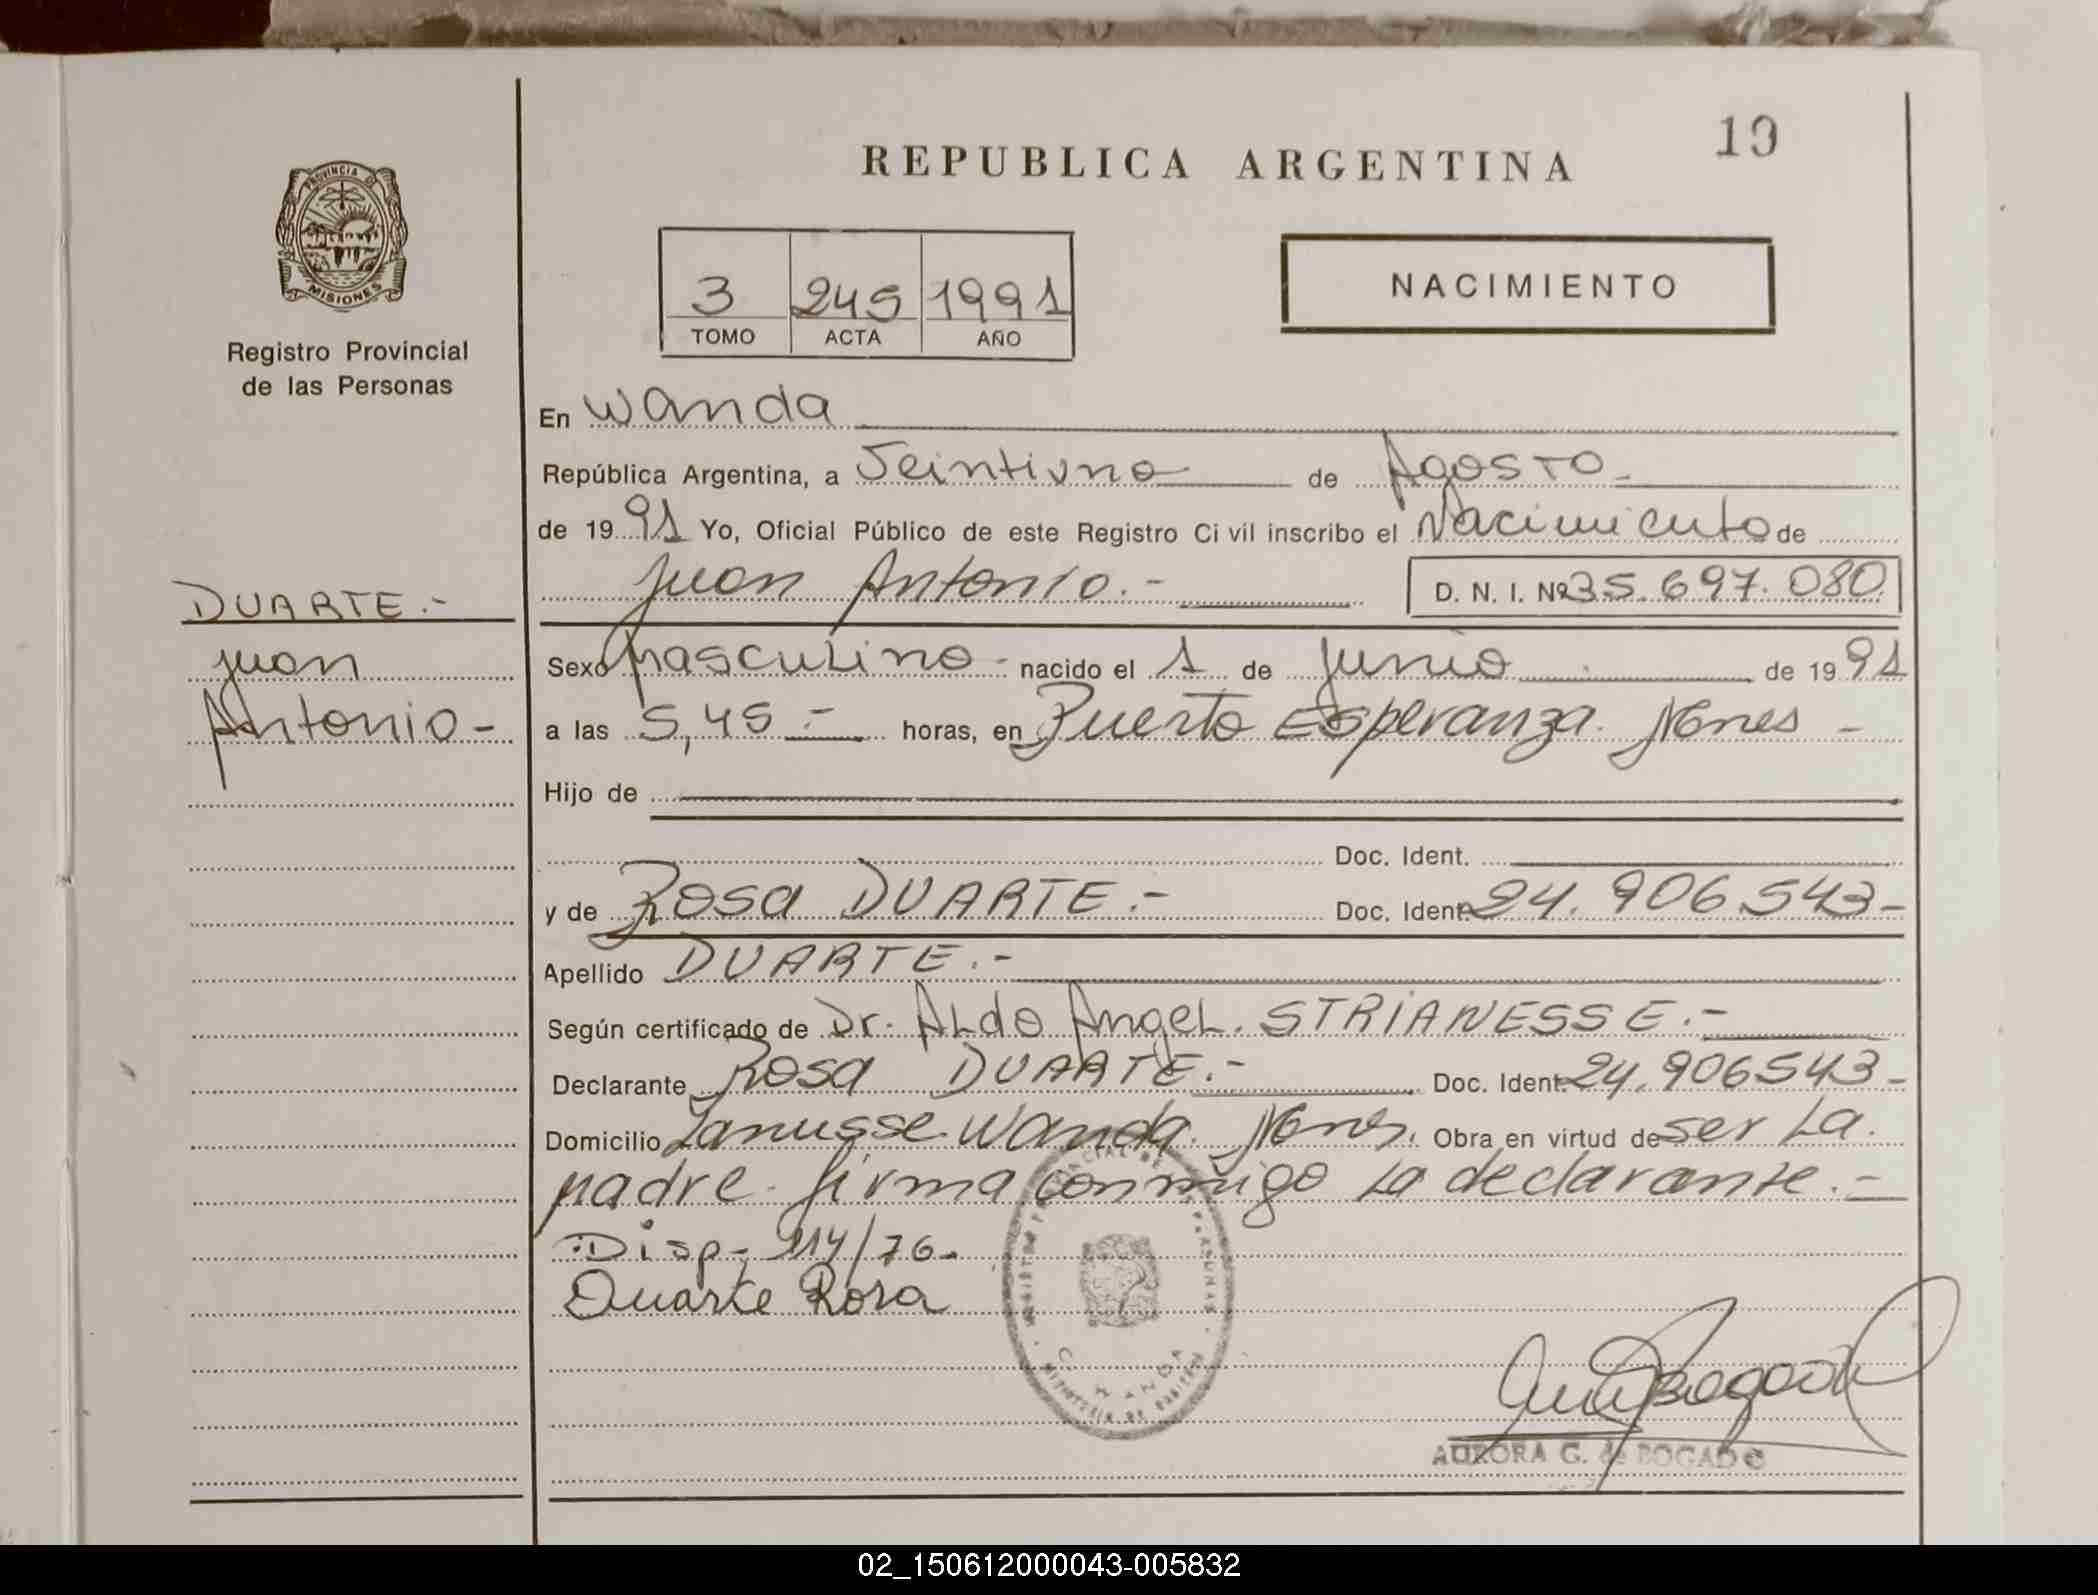 19
REPUBLICA ARGENTINA
PROVINCIA DE
MISIONES
Registro Provincial
de las Personas
NACIMIENTO
3 245 1991
TOMO ACTA AÑO
En Wanda
República Argentina, a Veintiuno de Agosto.-
de 1991 Yo, Oficial Público de este Registro Civil inscribo el Nacimiento de
Juan Antonio.- D. N. I. Nº 35.697.080
DUARTE.-
Juan
Antonio-
Sexo Masculino- nacido el 1 de Junio de 1991
a las 5,45.- horas, en Puerto Esperanza. Mnes-
Hijo de
Doc. Ident.
y de Rosa DUARTE.- Doc. Ident. 24.906543-
Apellido DUARTE.-
Según certificado de Dr. Aldo Angel. STRIANESSE.-
Declarante Rosa DUARTE.- Doc. Ident. 24.906543-
Domicilio Lanusse. Wanda. Mnes. Obra en virtud de ser La
Madre. firma conmigo La declarante.-
Disp- 214/76.
Duarte Rosa
WANDA
AURORA G. de BOGADO
02_150612000043-005832